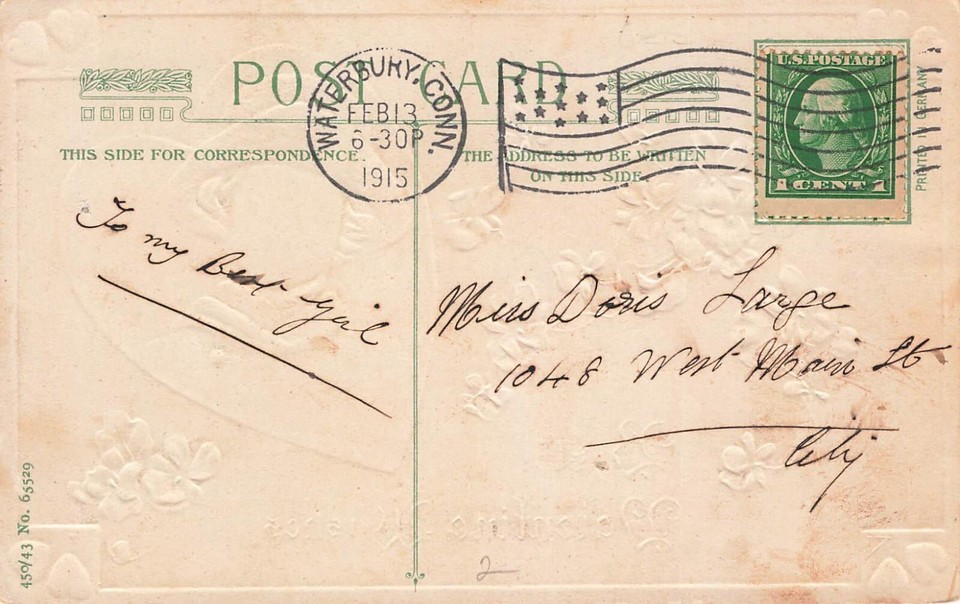 POST CARD
WATERBURY, CONN.
FEB 13
6-30P
1915
U.S. POSTAGE
1 CENT 1
PRINTED IN GERMANY
THIS SIDE FOR CORRESPONDENCE.
THE ADDRESS TO BE WRITTEN
ON THIS SIDE.
To my Best Girl
Miss Doris Large
1048 West Main St
City
450/43 No. 65529
2